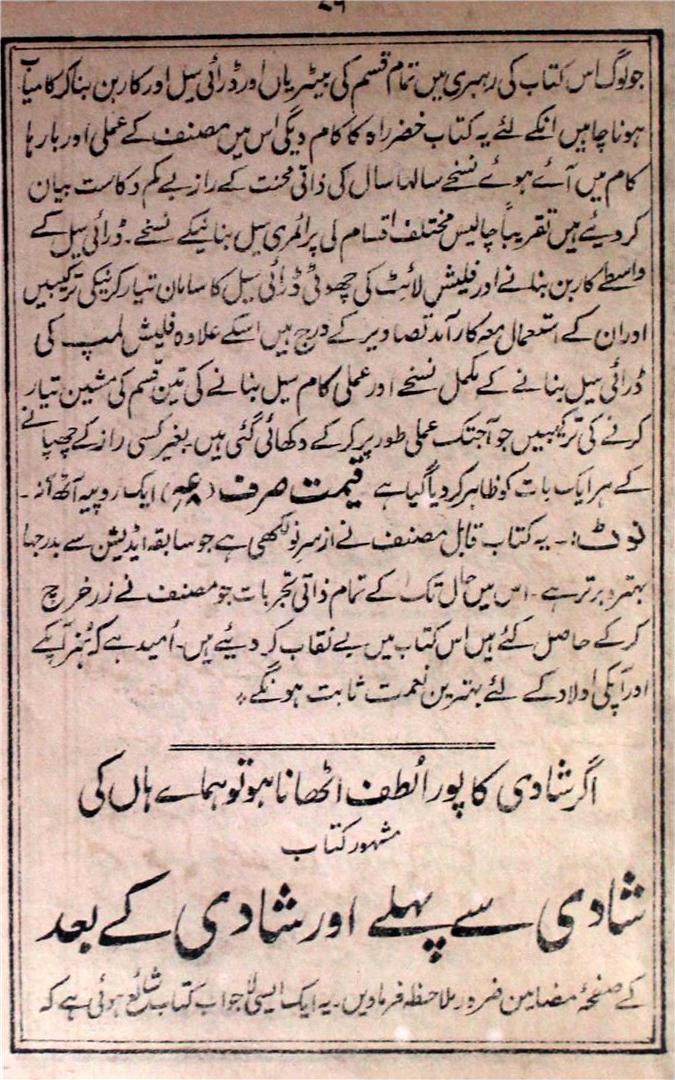 جولوگ اس کتاب کی رہبری میں تمام قسم کی بیٹریاں اور ڈرائی سیل اور کاربن بناکر کامیاب
ہونا چاہیں انکے لئے یہ کتاب خضر راہ کا کام دیگی اس میں مصنف کے عملی اور بارہا
کام میں آئے ہوئے نسخے سالہا سال کی ذاتی محنت کے راز بے کم و کاست بیان
کر دیئے ہیں تقریباً چالیس مختلف اقسام کی پرائمری سیل بنانیکے نسخے۔ ڈرائی سیل کے
واسطے کاربن بنانے اور فلیش لائٹ کی چھوٹی ڈرائی سیل کا سامان تیار کرنیکی ترکیبیں
اور ان کے استعمال معہ کارآمد تصاویر کے درج ہیں اسکے علاوہ فلیش لمپ کی
ڈرائی سیل بنانے کے مکمل نسخے اور عملی کام سیل بنانے کی تین قسم کی مشین تیار
کرنے کی ترکیبیں جو آجتک عملی طور پر کرکے دکھائی گئی ہیں۔ بغیر کسی راز کے چھپانے
کے ہر ایک بات کو ظاہر کردیا گیا ہے قیمت صرف ایک روپیہ آٹھ آنہ۔
نوٹ:۔ یہ کتاب قابل مصنف نے از سر نو لکھی ہے جو سابقہ ایڈیشن سے بدرجہا
بہتر و برتر ہے۔ اس میں حال تک کے تمام ذاتی تجربات جو مصنف نے زر خرچ
کرکے حاصل کئے ہیں اس کتاب میں بے نقاب کر دیئے ہیں۔ اُمید ہے کہ ہُنر آپکے
اور آپکی اولاد کے لئے بہترین نعمت ثابت ہونگے۔
اگر شادی کا پورا لُطف اٹھانا ہو تو ہمارے ہاں کی
مشہور کتاب
شادی سے پہلے اور شادی کے بعد
کے صفحۂ مضامین ضرور ملاحظہ فرمادیں۔ یہ ایک ایسی لاجواب کتاب شائع ہوئی ہے کہ